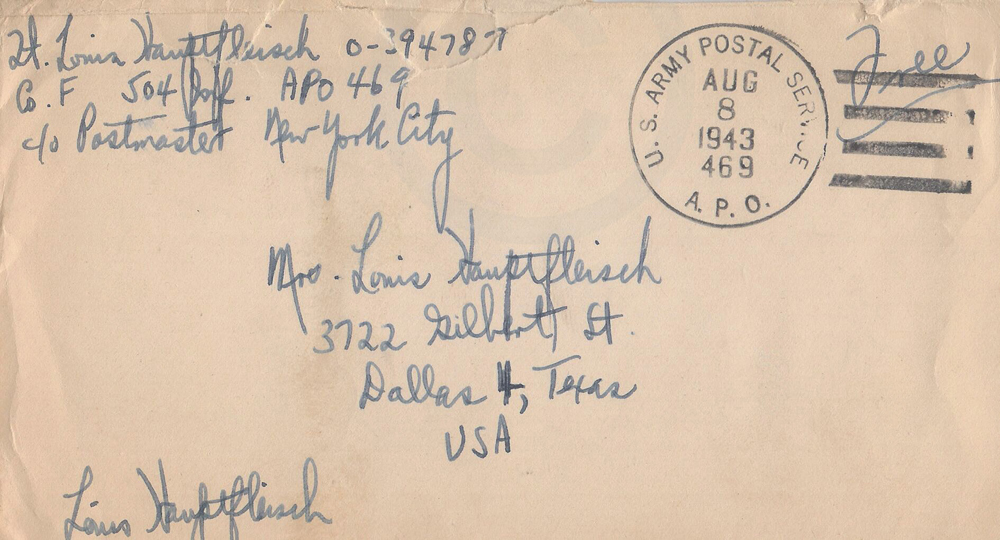 Lt. Louis Hauptfleisch O-394787
Co. F 504 APO 469
c/o Postmaster New York City
U. S. ARMY POSTAL SERVICE
AUG
8
1943
469
A. P. O.
Free
Mrs. Louis Hauptfleisch
3722 Gilbert St.
Dallas 4, Texas
USA
Louis Hauptfleisch